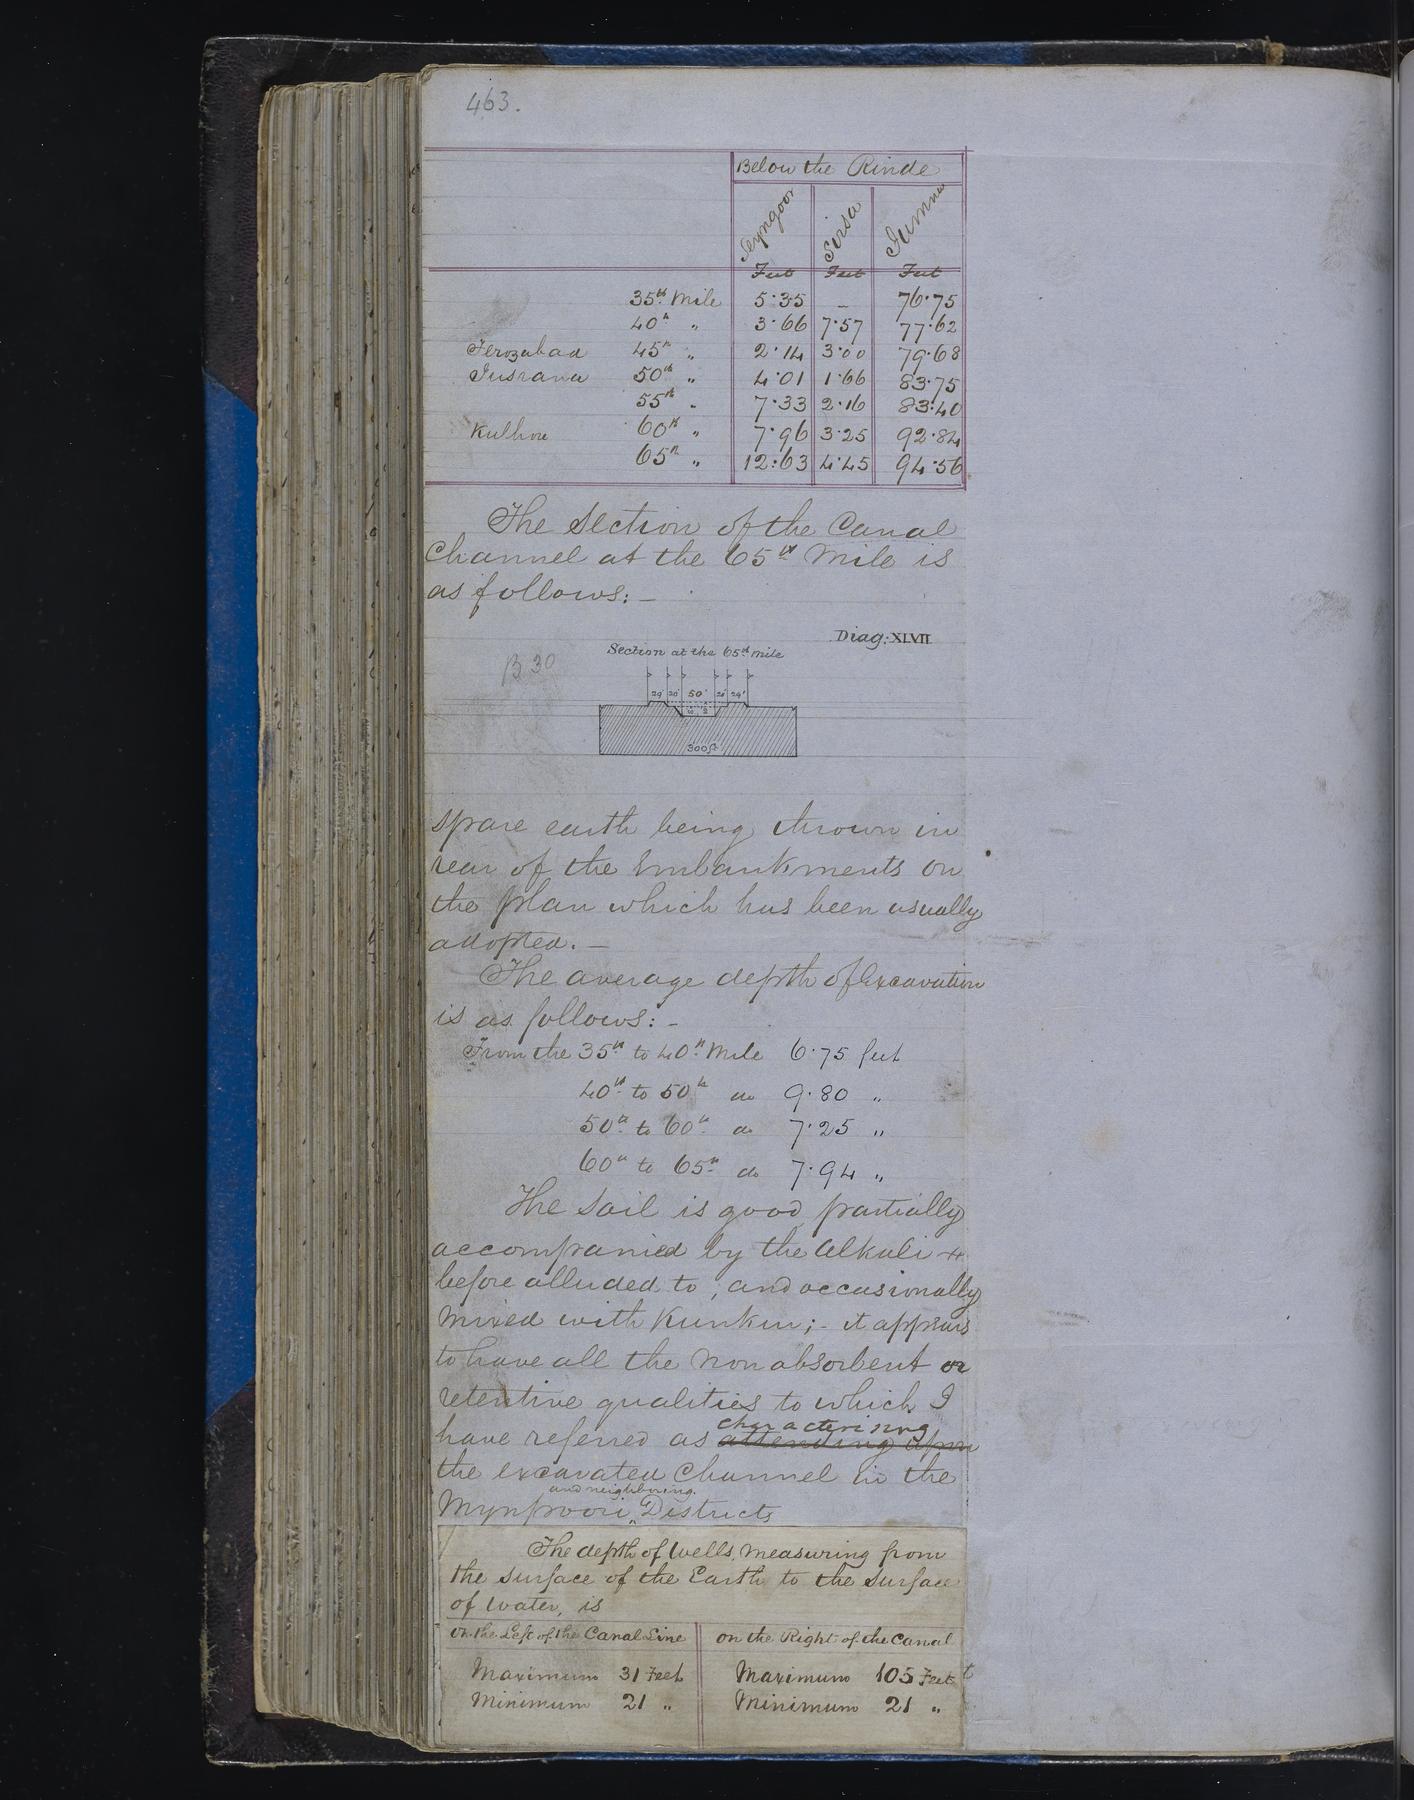 463.
Below the Rinde
Syngoor Sirsa Jumna
Feet Feet Feet
35th Mile 5.35 – 76.75
40th " 3.66 7.57 77.62
Ferozabad 45th " 2.14 3.00 79.68
Jusrana 50th " 4.01 1.66 83.75
55th " 7.33 2.16 83.40
60th " 7.96 3.25 92.84
65th " 12.63 4.45 94.56
The Section of the Canal
Channel at the 65th Mile is
as follows:–
Diag: XLVII
Section at the 65th Mile
B 30
29' 20' 50' 20' 29'
300 ft
spare earth being thrown in
rear of the Embankments on
the plan which has been usually
adopted.–
The average depth of Excavation
is as follows:–
From the 35th to 40th Mile 6.75 feet
40th to 50th do 9.80 "
50th to 60th do 7.25 "
60th to 65th do 7.94 "
The Soil is good partially
accompanied by the Alkali
before alluded to; and occasionally
mixed with Kunkur;– it appears
to have all the non absorbent or
retentive qualities to which I
characterising
have referred as attending upon
the excavated Channel in the
and neighboring
Mynpoori " Districts
The depth of Wells, measuring from
the surface of the Earth to the surface
of Water, is
on the Left of the Canal Line on the Right of the Canal
Maximum 31 Feet Maximum 105 Feet
Minimum 21 " Minimum 21 "